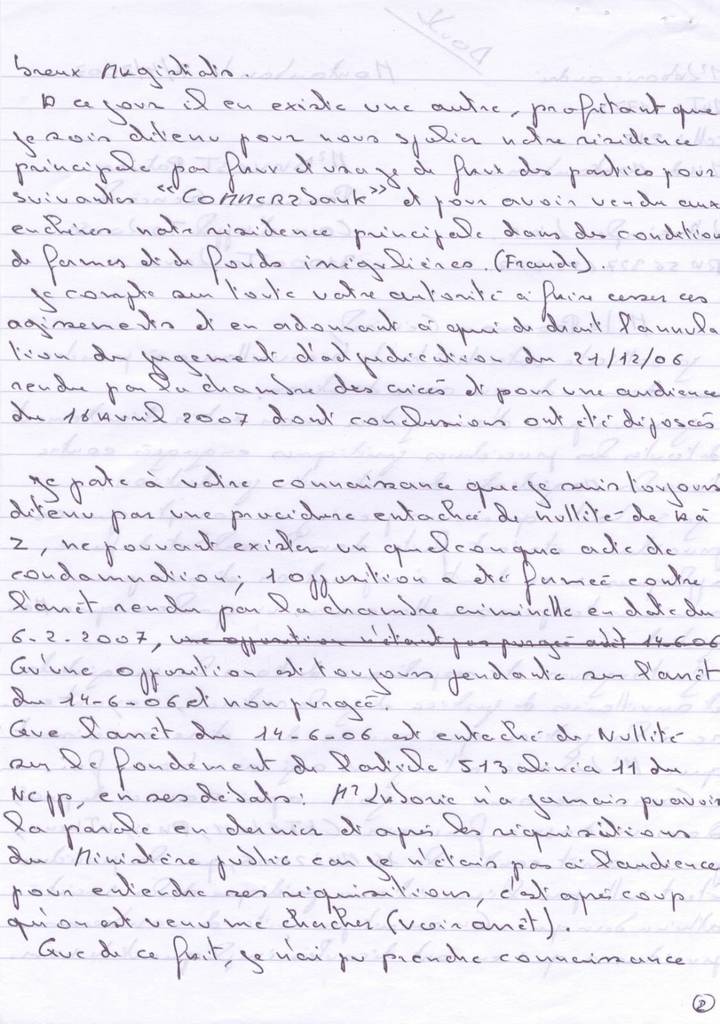 breux Magistrats.
A ce jour il en existe une autre, profitant que
je sois détenu pour nous spolier notre résidence
principale par faux et usage de faux des parties pour
suivantes "COMMERZbank" et pour avoir vendu aux
enchères notre résidence principale dans des condition
de formes et de fonds irrégulières. (Fraude).
Je compte sur toute votre autorité à faire cesser ces
agissements et en ordonnant à qui de droit l'annula
tion du jugement d'adjudication du 21/12/06
rendu par la chambre des criées et pour une audience
du 16 Avril 2007 dont conclusions ont été déposées
Je porte à votre connaissance que je suis toujours
détenu par une procédure entachée de nullité de A à
Z, ne pouvant exister un quelconque acte de
condamnation; 1 opposition a été formée contre
l'arrêt rendu par la chambre criminelle en date du
6-2-2007, une opposition n'étant pas purgée 14-6-06
Qu'une opposition est toujours pendante sur l'arrêt
du 14-6-06 et non purgée.
Que l'arrêt du 14-6-06 est entaché de Nullité
sur le fondement de l'article 513 alinéa 11 du
NCPP, en ses débats: Mr Laborie n'a jamais pu avoir
la parole en dernier et après les réquisitions
du Ministère public car je n'étais pas à l'audience
pour entendre ses réquisitions, c'est après coup
qu'on est venu me chercher (voir arrêt).
Que de ce fait, je n'ai pu prendre connaissance
2